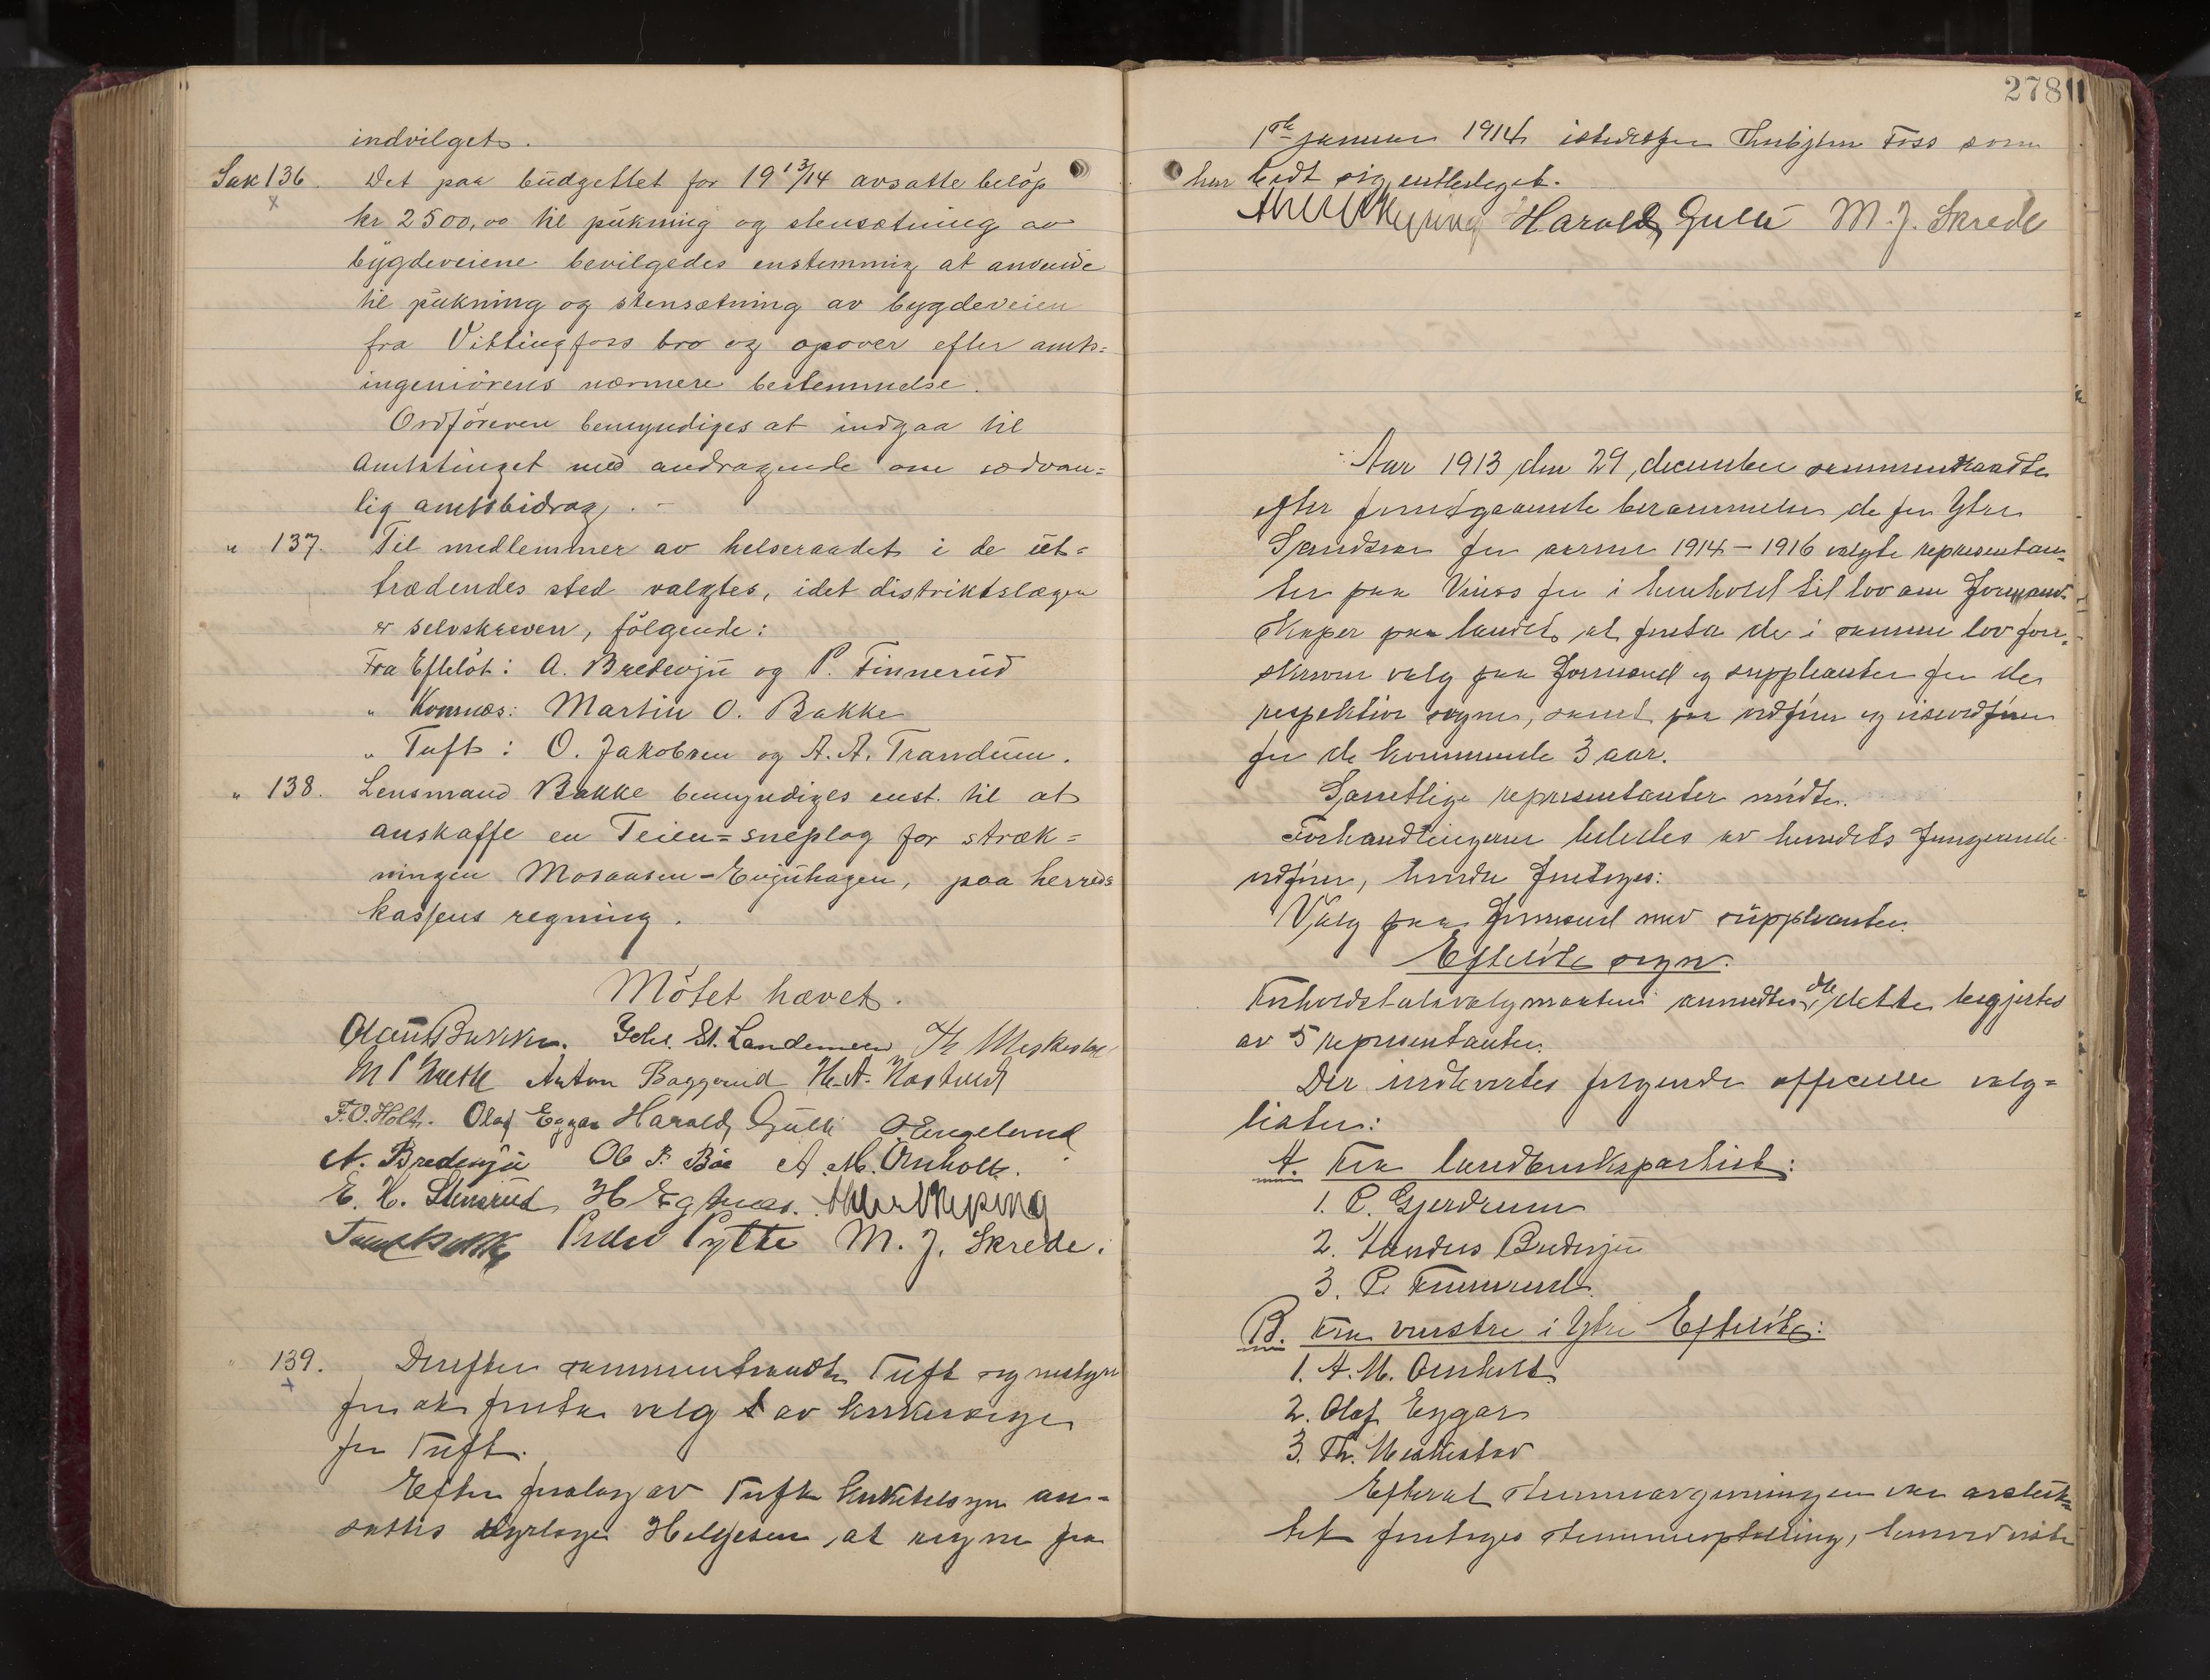 indvilget.
Sak 136. Det paa budgettet for 19 13/14 avsatte beløp
kr 2500,00 til pukning og stensætning av
bygdeveiene bevilgedes enstemmig at anvende
til pukning og stensætning av bygdeveien
fra Vittingfoss bro og opover efter amts=
ingeniörens nærmere bestemmelse.
Ordföreren bemyndiges at indgaa til
Amtstinget med andragende om sedvan=
lig amtsbidrag. -
" 137. Til medlemmer av helseraadet i de ut=
trædendes sted valgtes, idet distriktslægen
er selvskreven, fölgende:
Fra Efteløt: A. Bredevju og P. Finnerud
" Komnæs: Martin O. Bakke
" Tuft: O. Jakobsen og A. A. Trandum.
" 138. Lensmand Bakke bemyndiges enst. til at
anskaffe en Teien=sneplog for stræk=
ningen Mosaasen-Evjuhagen, paa herreds
kassens regning.
Mötet hævet.
Joh. St. Landemeen
Anton Baggerud
F.O. Holt. Olaf Eggar Harald Gulli O Engelund
A. Bredevju Ole P. Bøe A. M. Ornholt.
E. H. Stensrud
Peder Pytte M. J. Skrede.
" 139. Derefter sammentraadte Tuft sognestyre
for at foreta valg av kirkeverge
for Tuft.
Efter forslag av Tuft kirketilsyn an=
sattes Helgesen, at regne fra
278
1ste januar 1914 istedetfor Thorbjørn Foss som
har bedt sig entlediget.
Harald Gulli M. J. Skrede
Aar 1913 den 29, december sammentraadte
efter forutgaaende berammelse de for Ytre
Sandsvær for aarene 1914-1916 valgte represent<br>an=
ter paa Vinss for i henhold til lov om Formand=
skaper paa landet at foreta de i samme lov fore=
skrevne valg paa formænd og suppleanter for de
respektive sogne, samt paa ordfører og viseordfører
for de kommende 3 aar.
Samtlige representanter mødte.
Forhandlingerne lededes av herredets fungerende
ordfører, hvorder foretoges:
Valg paa formænd med suppleanter.
Efteløt sogn.
Forholdstalsvalgmaaten anvendtes, da dette begjærtes
av 5 representanter.
Der indleverte følgende officielle valg=
lister:
A. Fra landbrukspartiet:
1. P. Gjerdrum
2. Anders Bredevju
3. P. Finnerud
B. Fra venstre i Ytre Efteløt:
1. A. M. Ornholt
2. Olaf Eggar
3. Th. Meskestad
Efterat stemmeavgivningen var avslut=
tet foretoges stemmeoptælling, hvorved viste